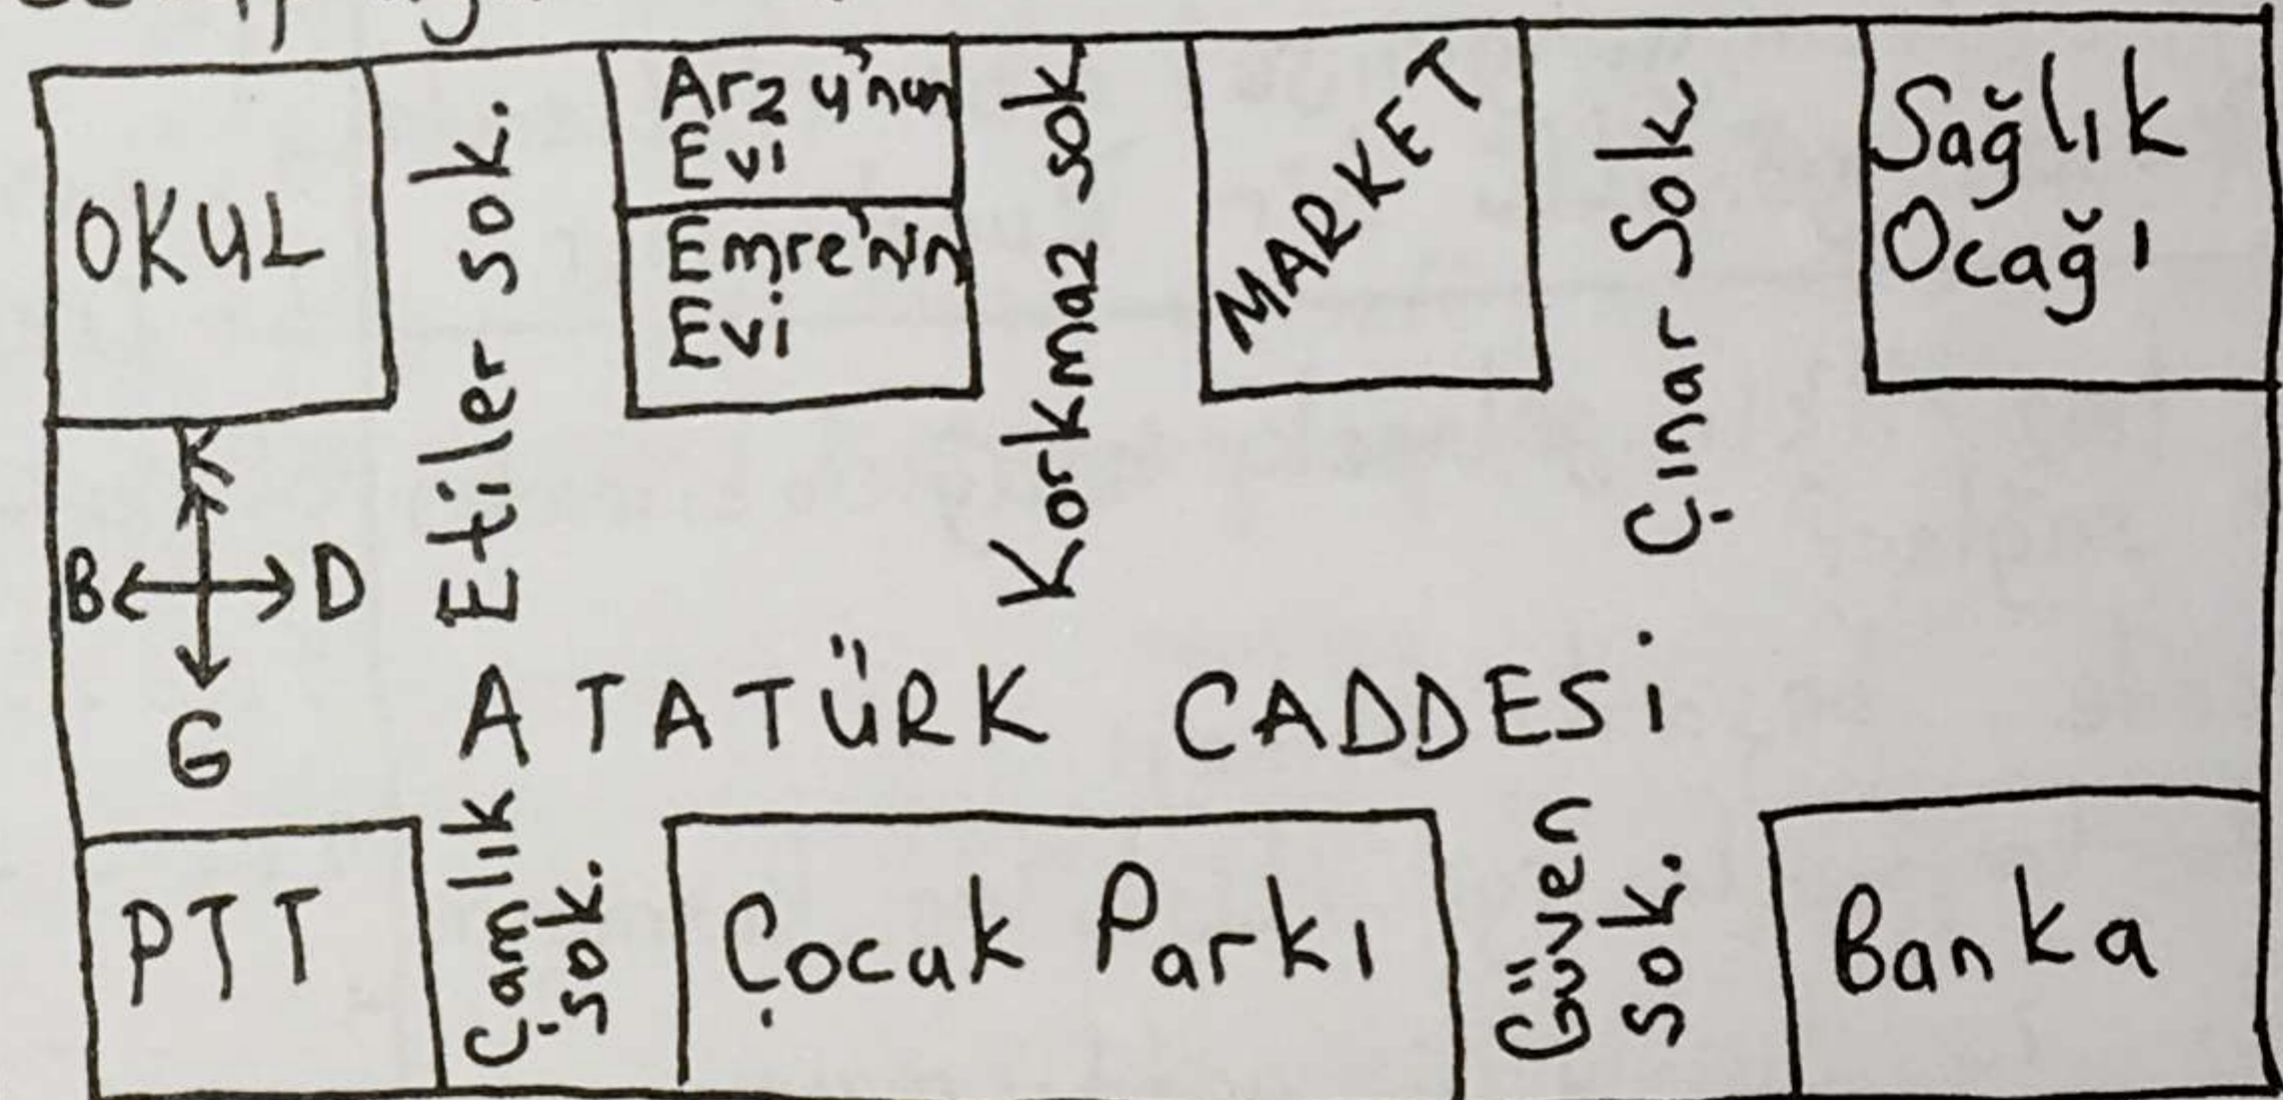 OKUL
Etiler sok.
Arzu'nun
Evi
Emre'nin
Evi
Korkmaz sok
MARKET
Çınar Sok
Sağlık
Ocağı
K
B D
G
ATATÜRK CADDESi
PTT
Çamlık
sok.
Çocuk Parkı
Güven
sok.
Banka